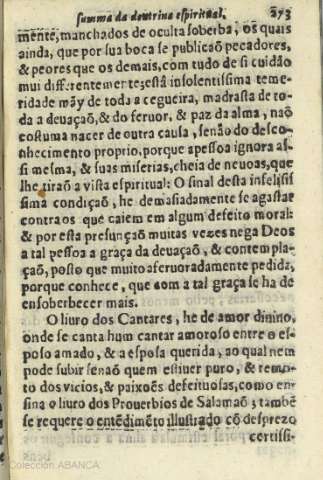 summa da doutrina espiritual. 273
mente, manchados de oculta soberba, os quais
ainda, que por sua boca se publicaõ pecadores,
& peores que os demais, com tudo de si cuidão
mui differentemente; está insolentissima teme-
ridade mãy de toda a cegueira, madrasta de to-
da a deuaçaõ, & do feruor, & paz da alma, naõ
costuma nacer de outra causa, senão do desco-
nhecimento proprio, porque apessoa ignora as-
si mesma, & suas miserias, cheia de neuoas, que
lhe tiraõ a vista espiritual: O sinal desta infelissis
sima condiçaõ, he demasiadamente se agastar
contra os que caiem em algum defeito moral:
& por esta presunçaõ muitas vezes nega Deos
a tal pessoa a graça da deuaçaõ, & contempla-
çaõ, posto que muito aferuoradamente pedida,
porque conhece, que com a tal graça se ha de
ensoberbecer mais.
O liuro dos Cantares, he de amor diuino,
onde se canta hum cantar amoroso entre o es-
poso amado, & a esposa querida, ao qual nem
pode subir senaõ quem estiuer puro, & remo-
to dos vicios, & paixoẽs defeituosas, como en-
sina o liuro dos Prouerbios de Salamaõ; tambẽ
se requere o entẽdimẽto illustrado cõ desprezo
certissi-
Colección ABANCA